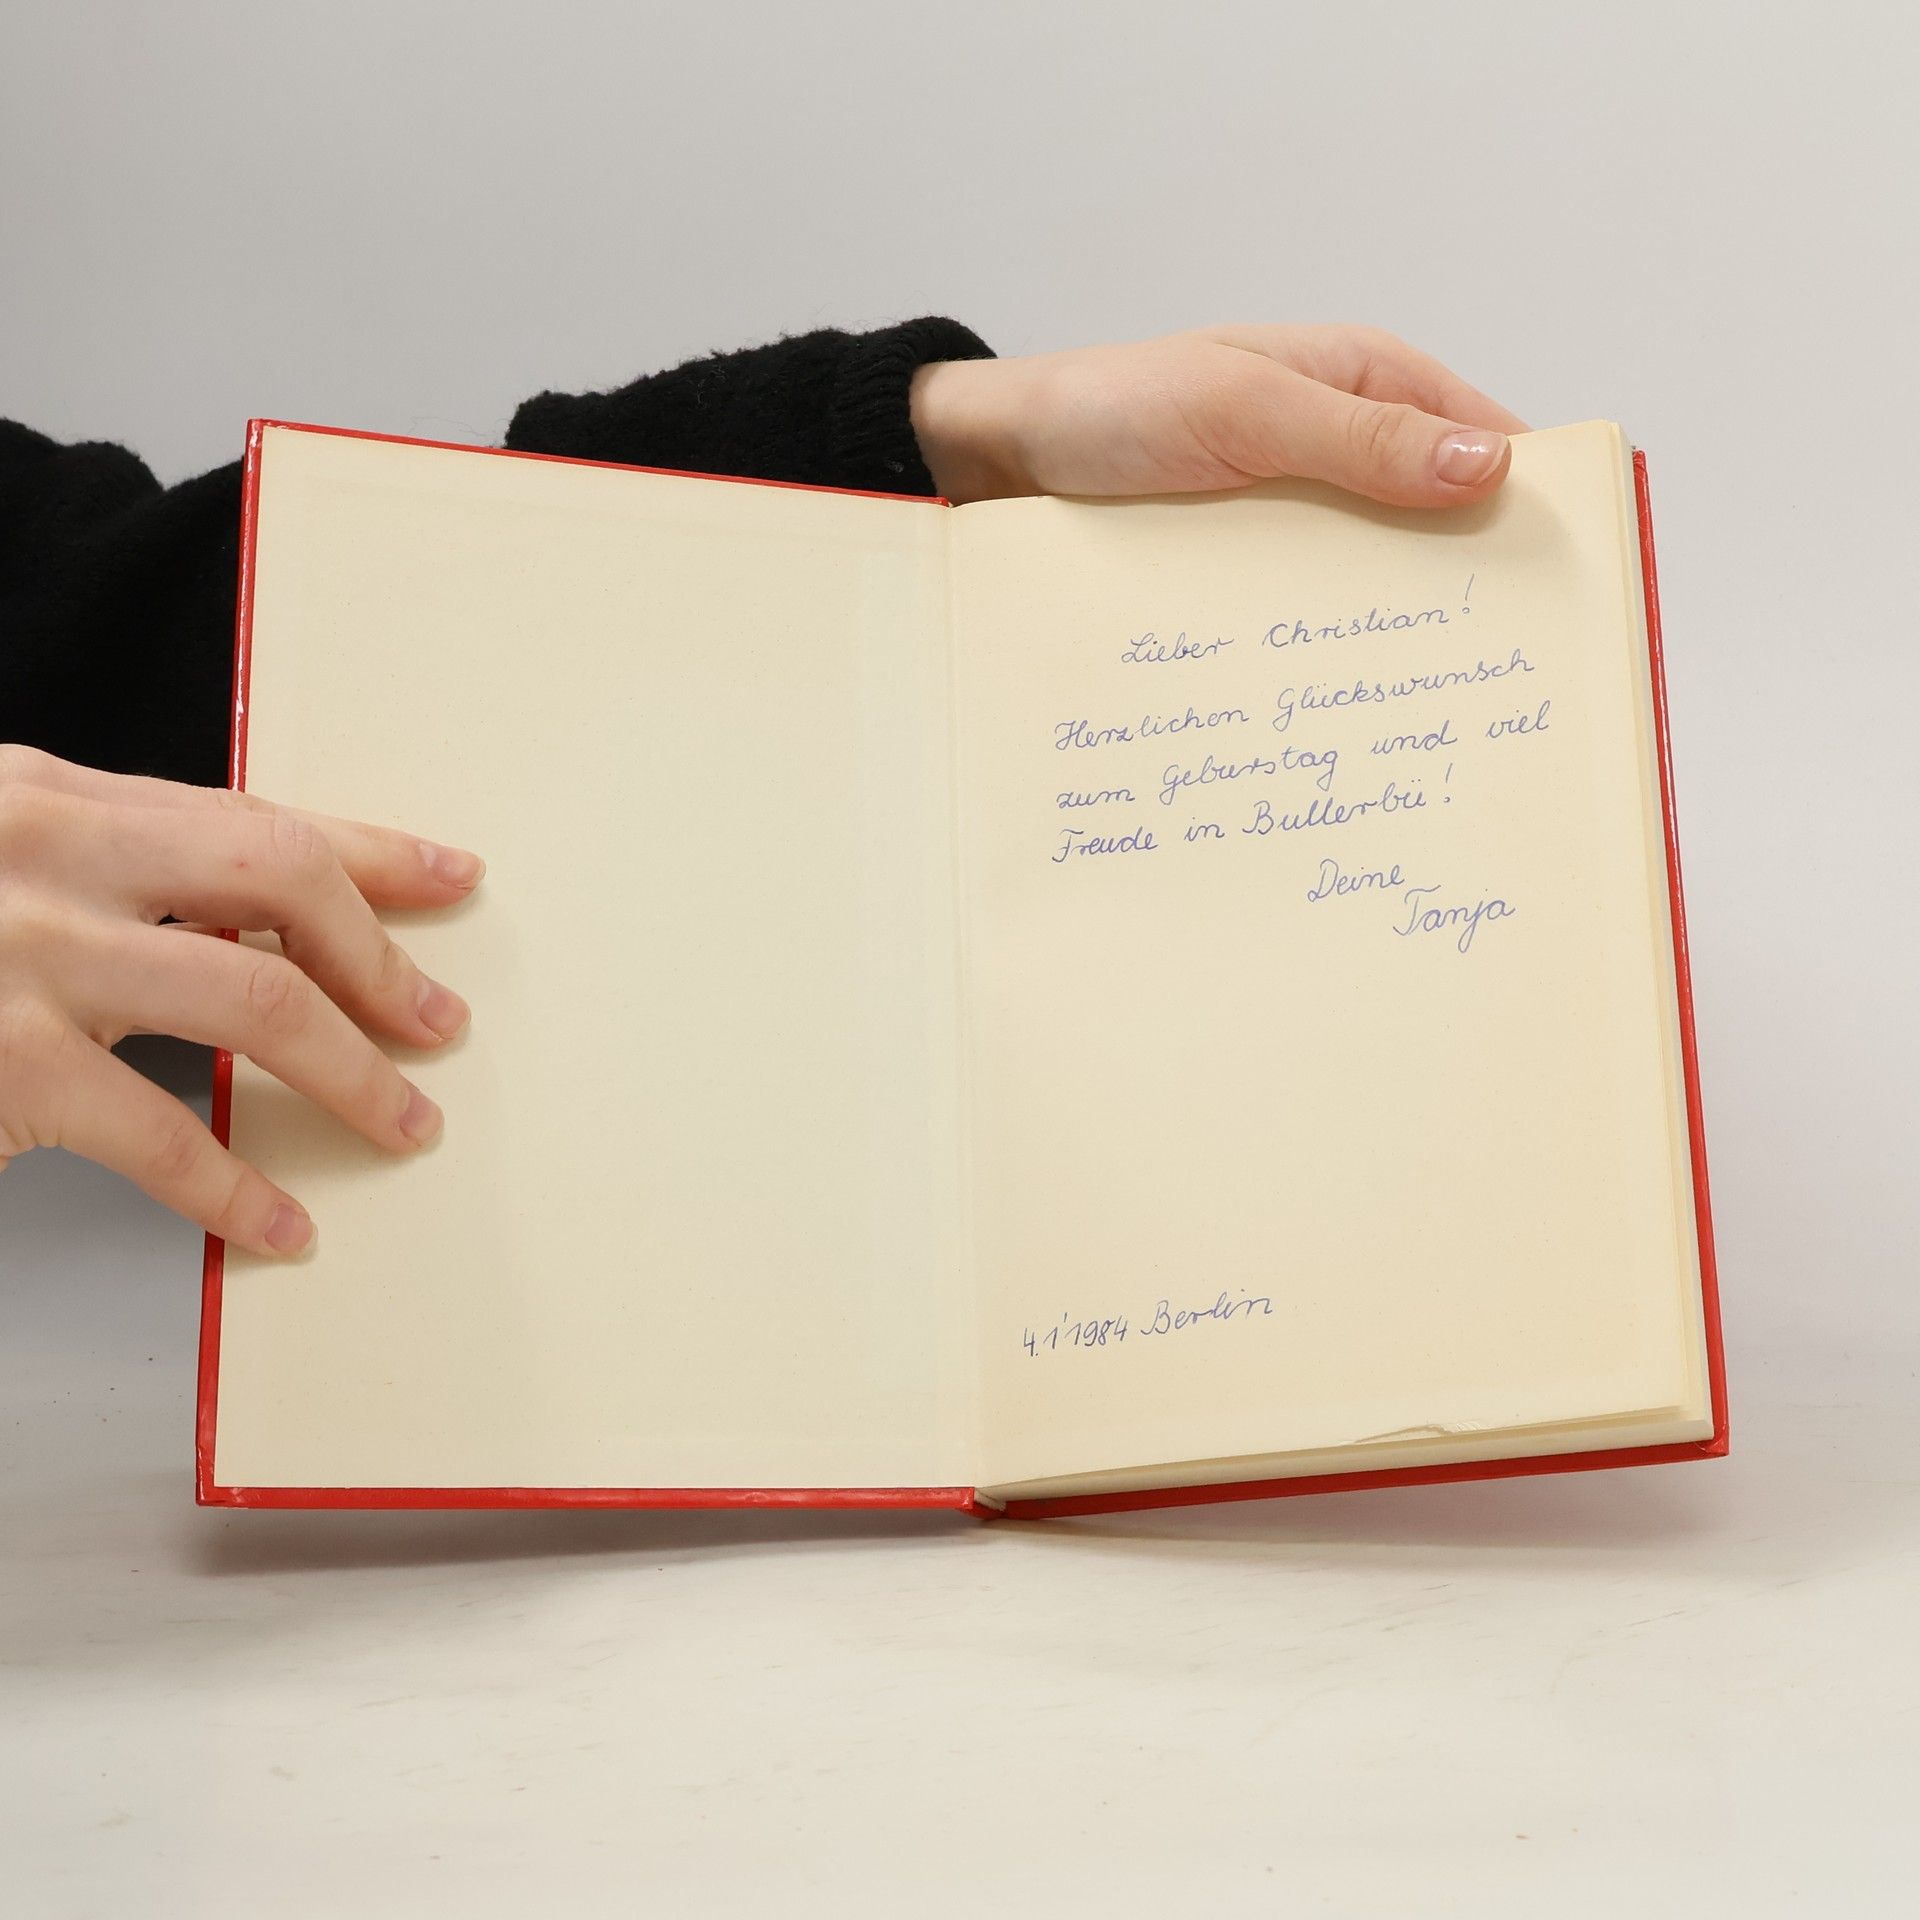 Lieber Christian!
Herzlichen Glückswunsch
zum Geburstag und viel
Freude in Bullerbü!
Deine
Tanja
4.1'1984 Berlin